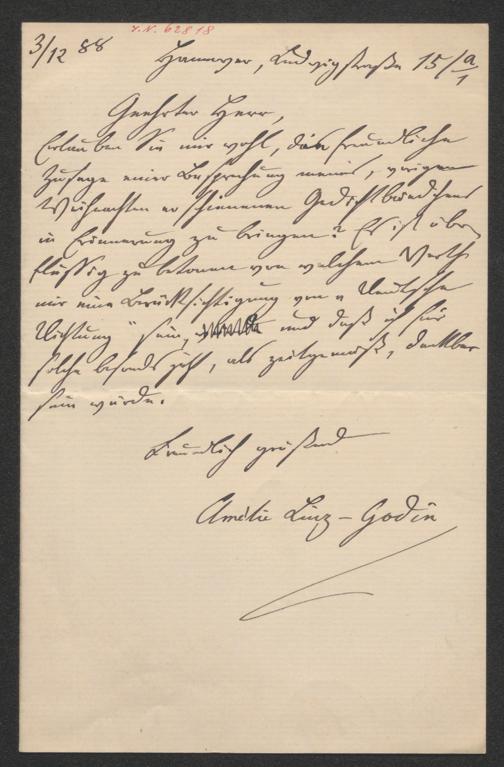 I.N. 62818
3/12 88
Hannover, Ludwigstraße 15/a/1
Geehrter Herr,
Erlauben Sie mir wohl, die freundliche
Zusage einer Besprechung meines, vorigen
Weihnachten erschienenen Gedichtbändchens
in Erinnerung zu bringen? Es ist über-
flüssig zu betonen von welchem Werth
mir eine Berücksichtigung von „Deutsche
Dichtung" sein, und daß ich für
solche besonders jetzt, als zeitgemäß, dankbar
sein würde.
Freundlich grüßend
Amélie Linz-Godin